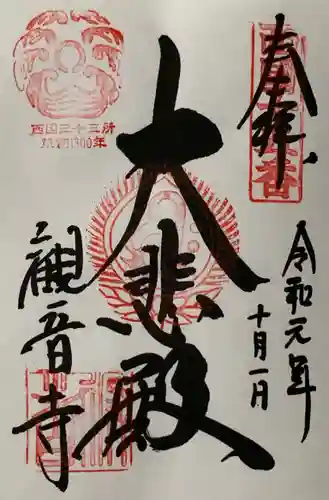 奉拝
令和元年
十月一日
大悲殿
観音寺
西国三十三所
草創1300年